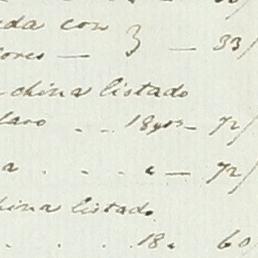 da con 3 — 33/
ores —
china listado
laro . . 18 yrs — 72/
a . . . " — 72/
hina listado
. . . 18 " 60